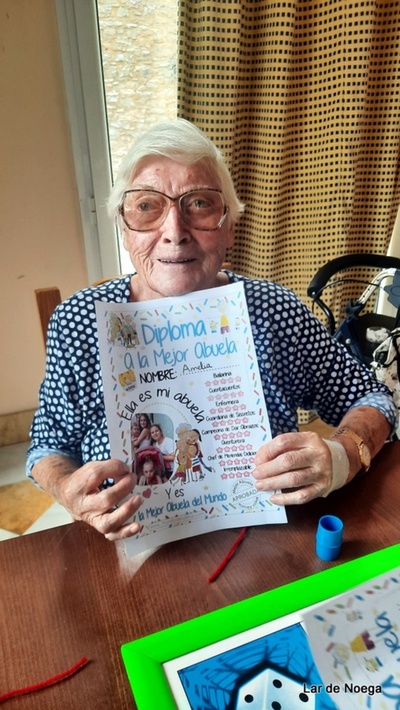 Diploma
a la Mejor Abuela
NOMBRE: Amelia
Ella es mi abuela
Bailarina
Cuentacuentos
Enfermera
Guardiana de Secretos
Campeona de Dar Abrazos
Cocinera
Irremplazable
Y es
la Mejor Abuela del Mundo
APROBADO
Abuela
Lar de Noega